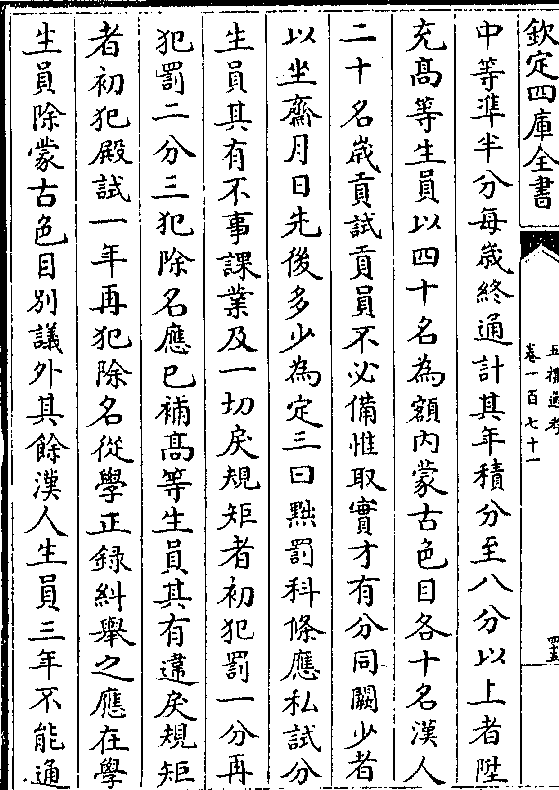 欽定四庫全書
五禮通考
卷一百七十一
中等準半分每歲終通計其年積分至八分以上者陞
充高等生員以四十名為額內蒙古色目各十名漢人
二十名歲貢試貢員不必備惟取實才有分同闕少者
以坐齋月日先後多少為定三曰黜罰科條應私試分
生員其有不事課業及一切戾規矩者初犯罰一分再
犯罰二分三犯除名應已補高等生員其有違戾規矩
者初犯殿試一年再犯除名從學正錄糾舉之應在學
生員除蒙古色目別議外其餘漢人生員三年不能通